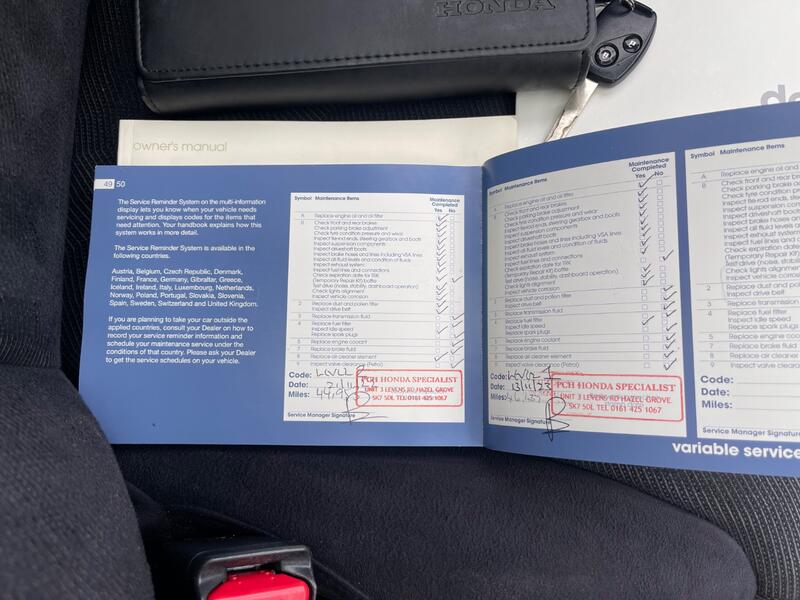 HONDA
owner's manual
49 50
The Service Reminder System on the multi-information
display lets you know when your vehicle needs
servicing and displays codes for the items that
need attention. Your handbook explains how this
system works in more detail.
The Service Reminder System is available in the
following countries.
Austria, Belgium, Czech Republic, Denmark,
Finland, France, Germany, Gibraltar, Greece,
Iceland, Ireland, Italy, Luxembourg, Netherlands,
Norway, Poland, Portugal, Slovakia, Slovenia,
Spain, Sweden, Switzerland and United Kingdom.
If you are planning to take your car outside the
applied countries, consult your Dealer on how to
record your service reminder information and
schedule your maintenance service under the
conditions of that country. Please ask your Dealer
to get the service schedules on your vehicle.
Symbol Maintenance Items Maintenance
Completed
Yes No
A Replace engine oil and oil filter
B Check front and rear brakes
Check parking brake adjustment
Check tyre condition pressure and wear
Inspect tie-rod ends, steering gearbox and boots
Inspect suspension components
Inspect driveshaft boots
Inspect brake hoses and lines including VSA lines
Inspect all fluid levels and condition of fluids
Inspect exhaust system
Inspect fuel lines and connections
Check expiration date for TRK
(Temporary Repair Kit) bottle
Test drive (noise, stability, dashboard operation)
Check lights alignment
Inspect vehicle corrosion
2 Replace dust and pollen filter
Inspect drive belt
3 Replace transmission fluid
4 Replace fuel filter
Inspect idle speed
Replace spark plugs
5 Replace engine coolant
7 Replace brake fluid
8 Replace air cleaner element
9 Inspect valve clearance (Petrol)
Code:
Date:
Miles:
PCH HONDA SPECIALIST
UNIT 3 LEVENS RD HAZEL GROVE
SK7 5DL TEL 0161 425 1067
Service Manager Signature
Symbol Maintenance Items Maintenance
Completed
Yes No
A Replace engine oil and oil filter
B Check front and rear brakes
Check parking brake adjustment
Check tyre condition pressure and wear
Inspect tie-rod ends, steering gearbox and boots
Inspect suspension components
Inspect driveshaft boots
Inspect brake hoses and lines including VSA lines
Inspect all fluid levels and condition of fluids
Inspect exhaust system
Inspect fuel lines and connections
Check expiration date for TRK
(Temporary Repair Kit) bottle
Test drive (noise, stability, dashboard operation)
Check lights alignment
Inspect vehicle corrosion
2 Replace dust and pollen filter
Inspect drive belt
3 Replace transmission fluid
4 Replace fuel filter
Inspect idle speed
Replace spark plugs
5 Replace engine coolant
7 Replace brake fluid
8 Replace air cleaner element
9 Inspect valve clearance (Petrol)
Code:
Date: 13/11/23
Miles:
PCH HONDA SPECIALIST
UNIT 3 LEVENS RD HAZEL GROVE
SK7 5DL TEL 0161 425 1067
Service Manager Signature
Symbol Maintenance Items
A Replace engine oil and
B Check front and rear
Check parking brake
Check tyre condition
Inspect tie-rod ends,
Inspect suspension
Inspect driveshaft
Inspect brake hoses
Inspect all fluid levels
Inspect exhaust system
Inspect fuel lines and
Check expiration date
(Temporary Repair Kit)
Test drive (noise,
Check lights alignment
Inspect vehicle
2 Replace dust and
Inspect drive belt
3 Replace transmission
4 Replace fuel filter
Inspect idle speed
Replace spark plugs
5 Replace engine
7 Replace brake fluid
8 Replace air cleaner
9 Inspect valve
Code:
Date:
Miles:
Service Manager Signature
variable service